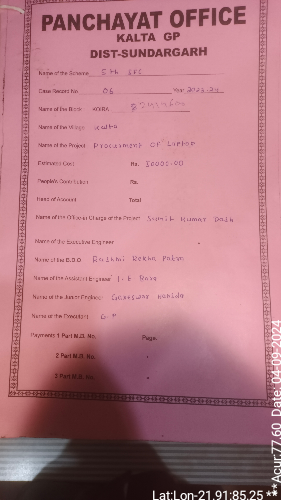 PANCHAYAT OFFICE
KALTA GP
DIST-SUNDARGARH
Name of the Scheme 5th SFC
Case Record No. 06 Year 2023-24
Name of the Block KOIRA
Name of the Village Kalta
Name of the Project Procurement OF Laptop
Estimated Cost Rs. 50000.00
People's Contribution Rs.
Head of Account Total
Name of the Officer in Charge of the Project Sumit Kumar Dash
Name of the Executive Engineer
Name of the B.D.O Rashmi Rekha Patra
Name of the Assistant Engineer
Name of the Junior Engineer
Name of the Executant G.P
Payments 1 Part M.B. No. Page.
2 Part M.B. No.
3 Part M.B. No.
Lat:Lon-21.91:85.25
***Acur:77.60 Date: 04-09-2024